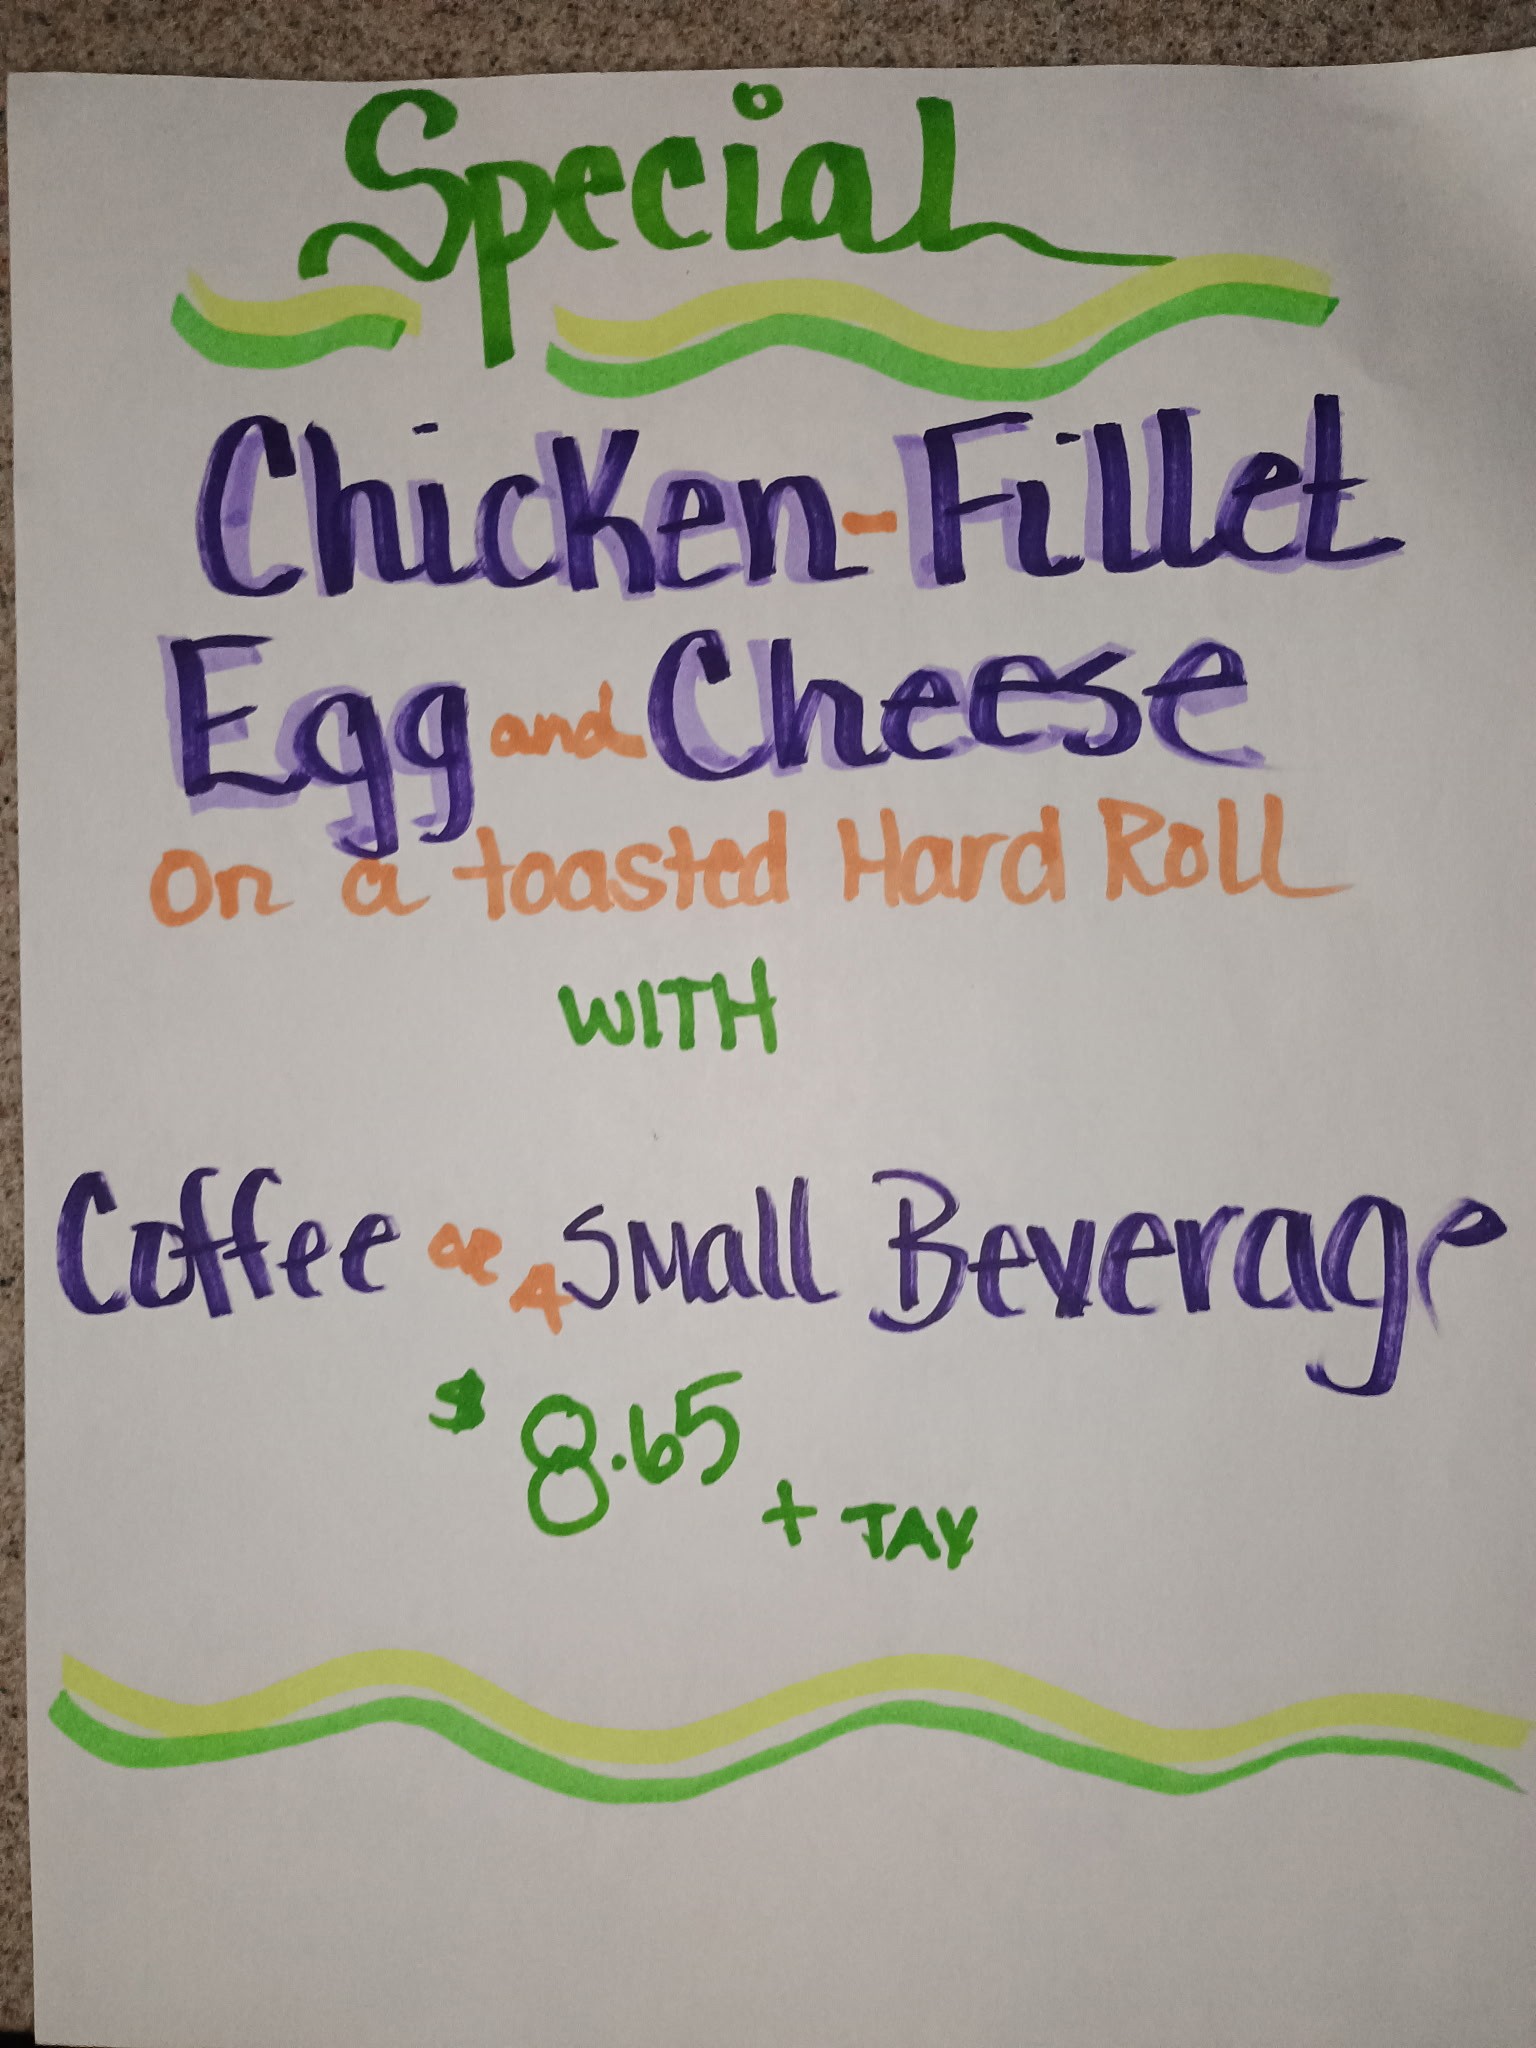 Special
Chicken-Fillet
Egg and Cheese
on a toasted Hard Roll
WITH
Coffee or A Small Beverage
$8.65 + TAX